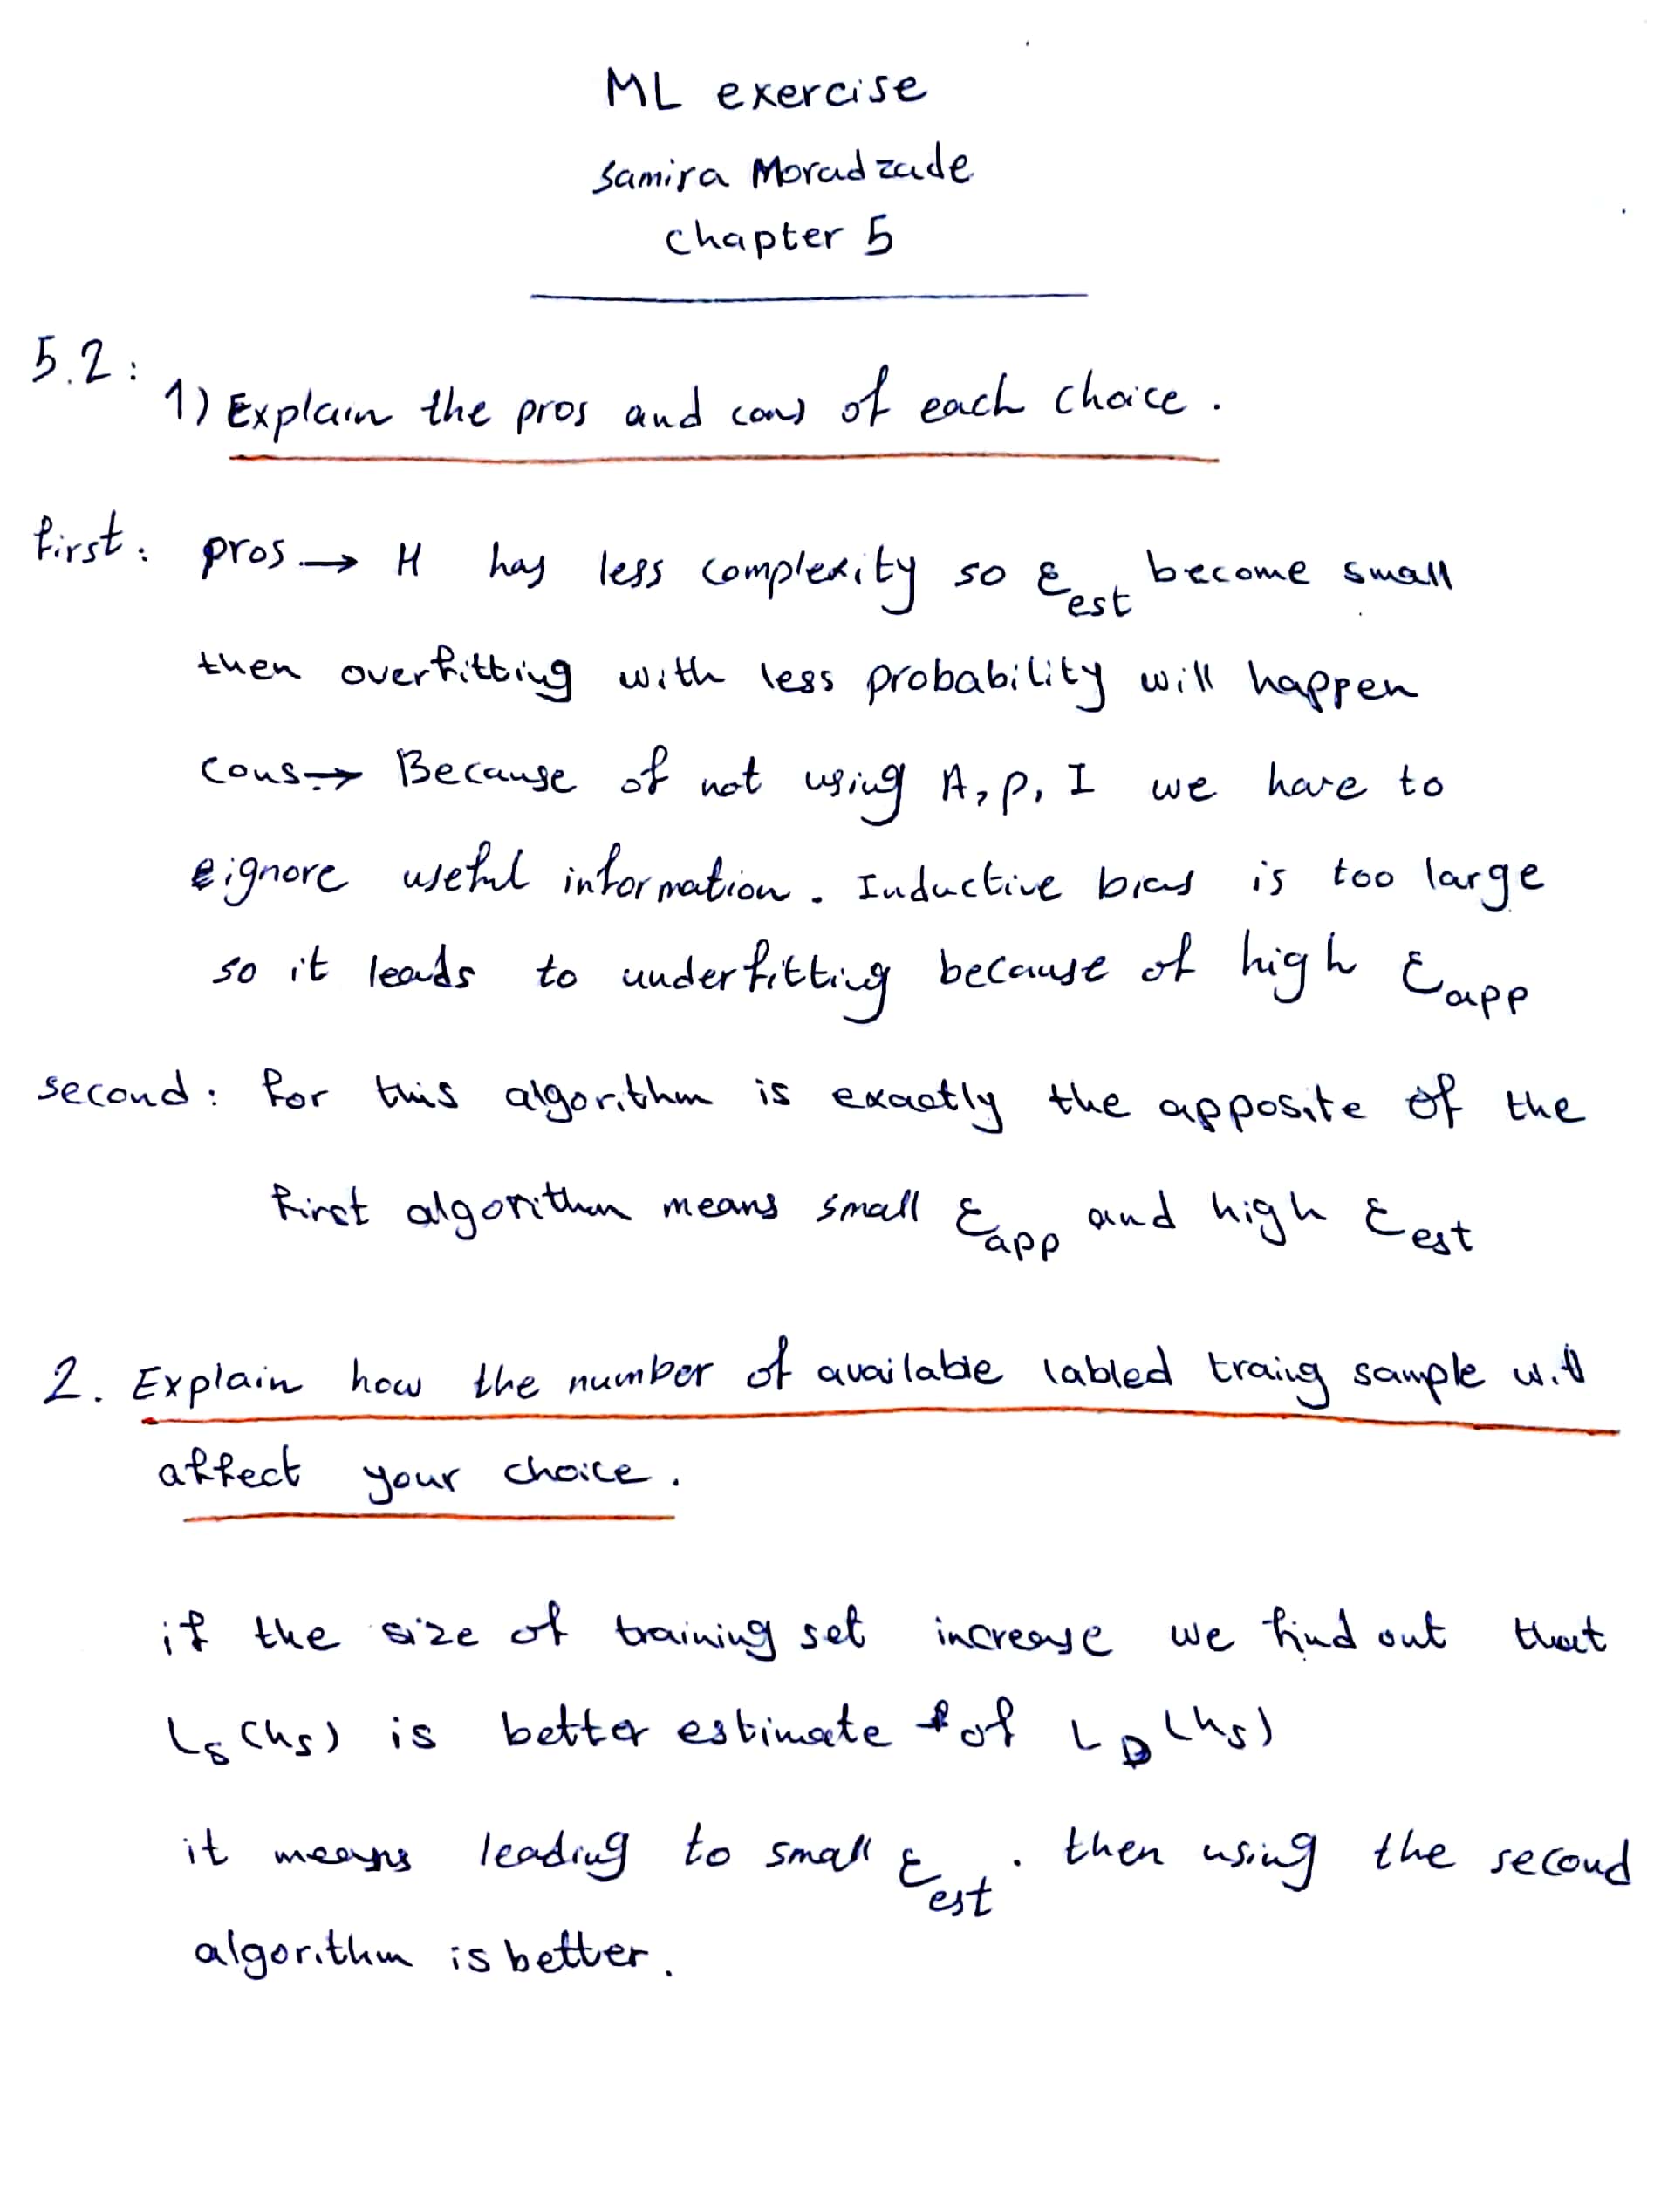 ML exercise
Samira Moradzade
chapter 5
5.2:
1) Explain the pros and cons of each choice.
first: pros → H has less complexity so ε_est become small
then overfitting with less probability will happen
cons → Because of not using A, P, I we have to
ignore useful information. Inductive bias is too large
so it leads to underfitting because of high ε_app
second: for this algorithm is exactly the apposite of the
first algorithm means small ε_app and high ε_est
2. Explain how the number of available labled traing sample will
affect your choice.
if the size of training set increase we find out that
L_S(h_S) is better estimate of L_D(h_S)
it means leading to small ε_est. then using the second
algorithm is better.